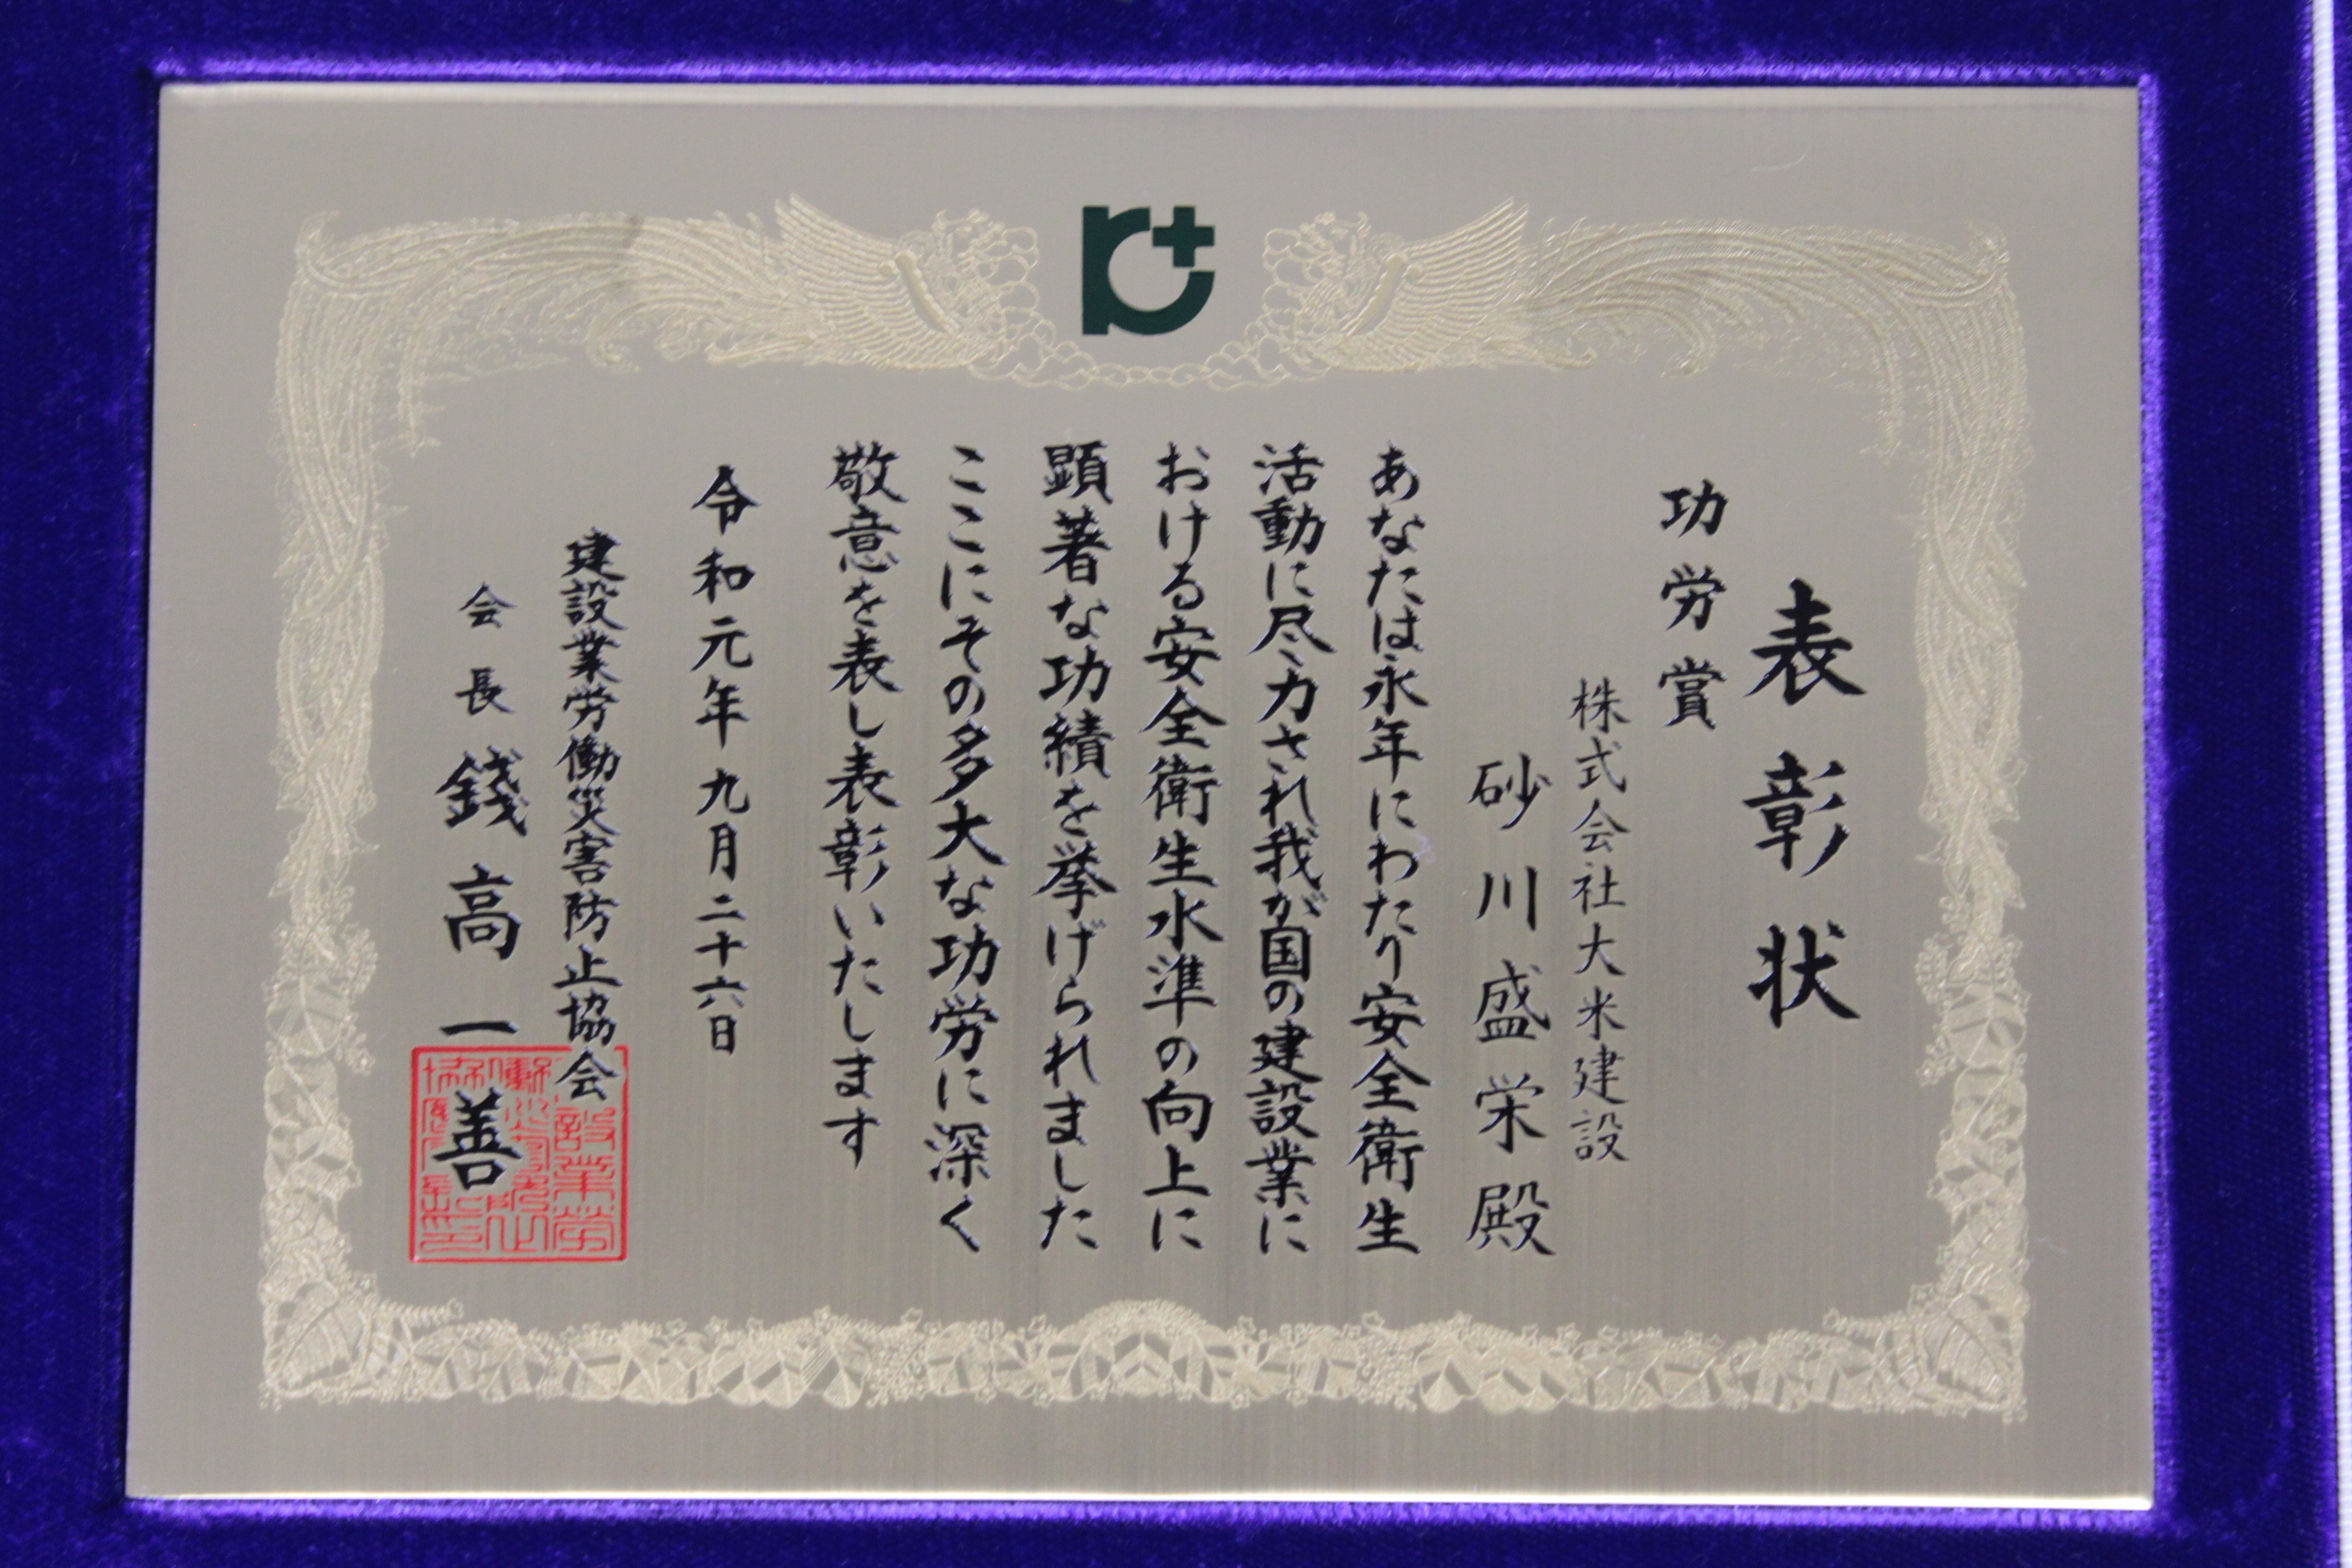 表彰状
功労賞
株式会社大米建設
砂川盛栄殿
あなたは永年にわたり安全衛生
活動に尽力され我が国の建設業に
おける安全衛生水準の向上に
顕著な功績を挙げられました
ここにその多大な功労に深く
敬意を表し表彰いたします
令和元年九月二十六日
建設業労働災害防止協会
会長 錢高一善